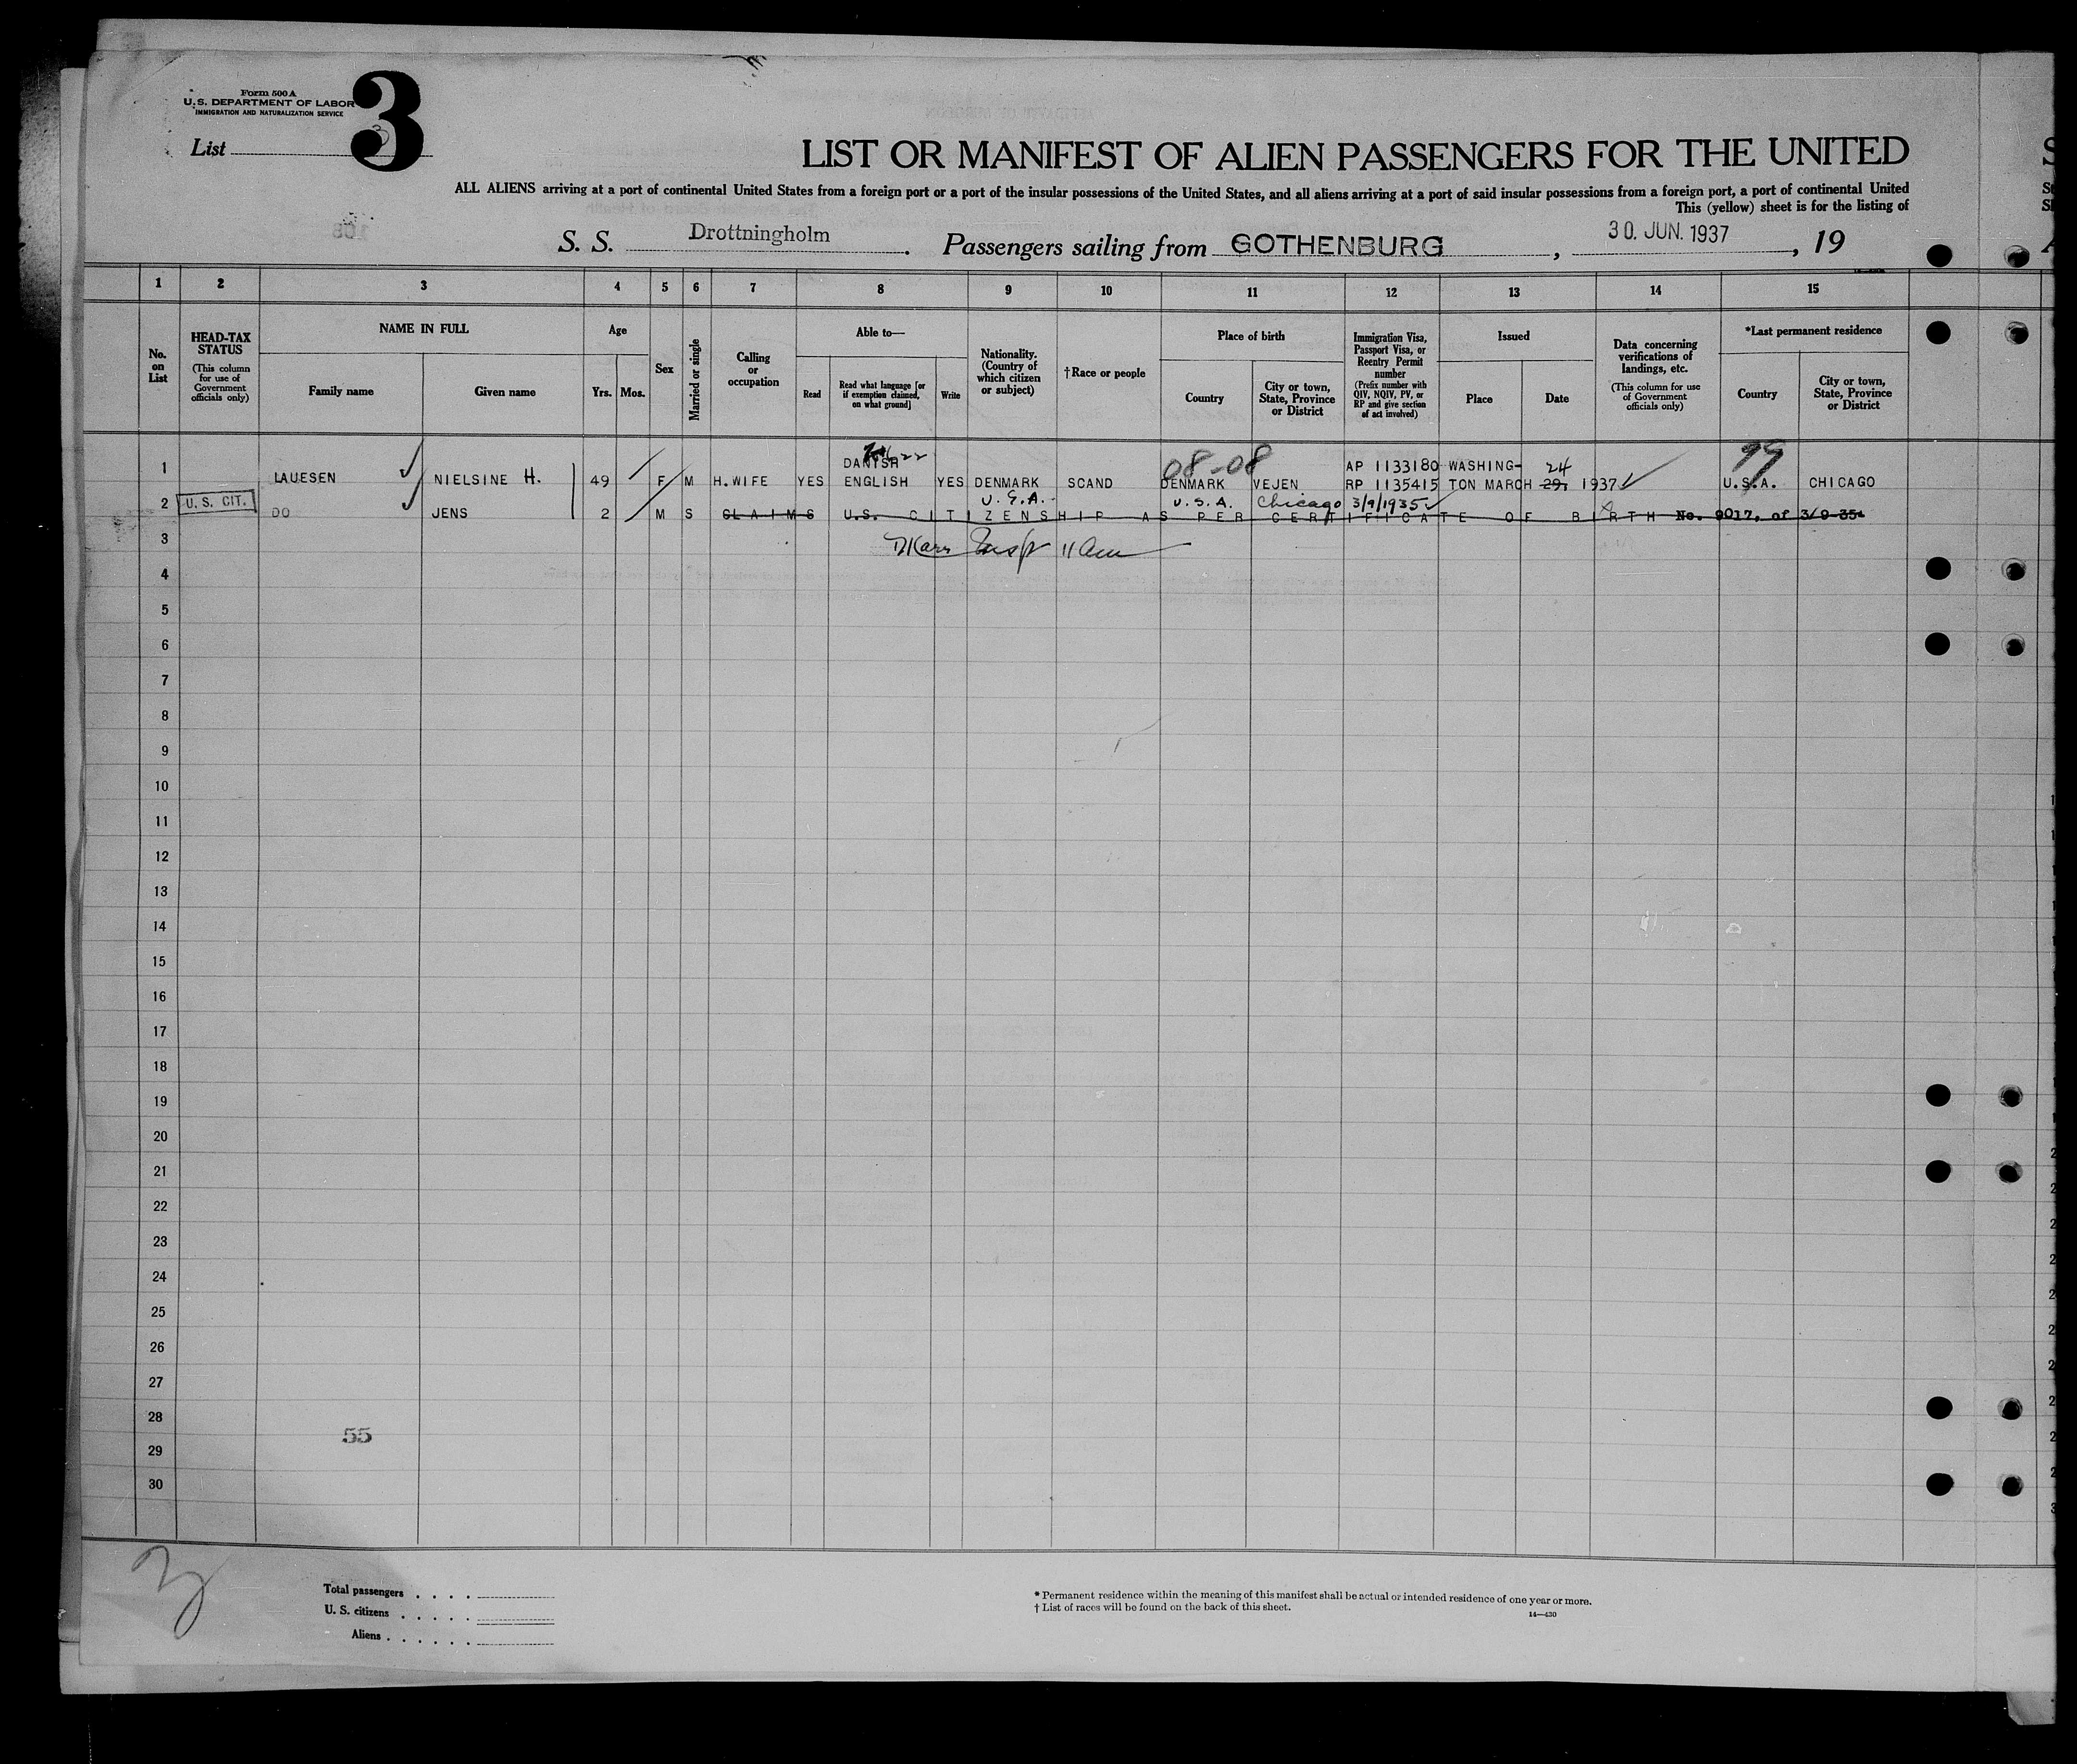 Form 500 A
U. S. DEPARTMENT OF LABOR
IMMIGRATION AND NATURALIZATION SERVICE
3
List
3
LIST OR MANIFEST OF ALIEN PASSENGERS FOR THE UNITED
ALL ALIENS arriving at a port of continental United States from a foreign port or a port of the insular possessions of the United States, and all aliens arriving at a port of said insular possessions from a foreign port, a port of continental United
This (yellow) sheet is for the listing of
S. S. Drottningholm. Passengers sailing from GOTHENBURG, 30. JUN. 1937, 19
1 2 3 4 5 6 7 8 9 10 11 12 13 14 15
No. on List
HEAD-TAX STATUS
(This column for use of Government officials only)
NAME IN FULL
Family name
Given name
Age
Yrs.
Mos.
Sex
Married or single
Calling or occupation
Able to—
Read
Read what language [or if exemption claimed, on what ground]
Write
Nationality. (Country of which citizen or subject)
†Race or people
Place of birth
Country
City or town, State, Province or District
Immigration Visa, Passport Visa, or Reentry Permit number
(Prefix number with QIV, NQIV, PV, or RP and give section of act involved)
Issued
Place
Date
Data concerning verifications of landings, etc.
(This column for use of Government officials only)
*Last permanent residence
Country
City or town, State, Province or District
08-08 99
DANISH AP 1133180 WASHING- 24
1 LAUESEN NIELSINE H. 49 F M H.WIFE YES ENGLISH YES DENMARK SCAND DENMARK VEJEN RP 1135415 TON MARCH 29, 1937 U.S.A. CHICAGO
U.S.A. U.S.A. Chicago 3/9/1935
2 U. S. CIT. DO JENS 2 M S CLAIMS U.S. CITIZENSHIP AS PER CERTIFICATE OF BIRTH No. 9017, of 3/9-35
3 Insp 11 am
4
5
6
7
8
9
10
11
12
13
14
15
16
17
18
19
20
21
22
23
24
25
26
27
28
55
29
30
Total passengers
U. S. citizens
Aliens
* Permanent residence within the meaning of this manifest shall be actual or intended residence of one year or more.
† List of races will be found on the back of this sheet.
14—430